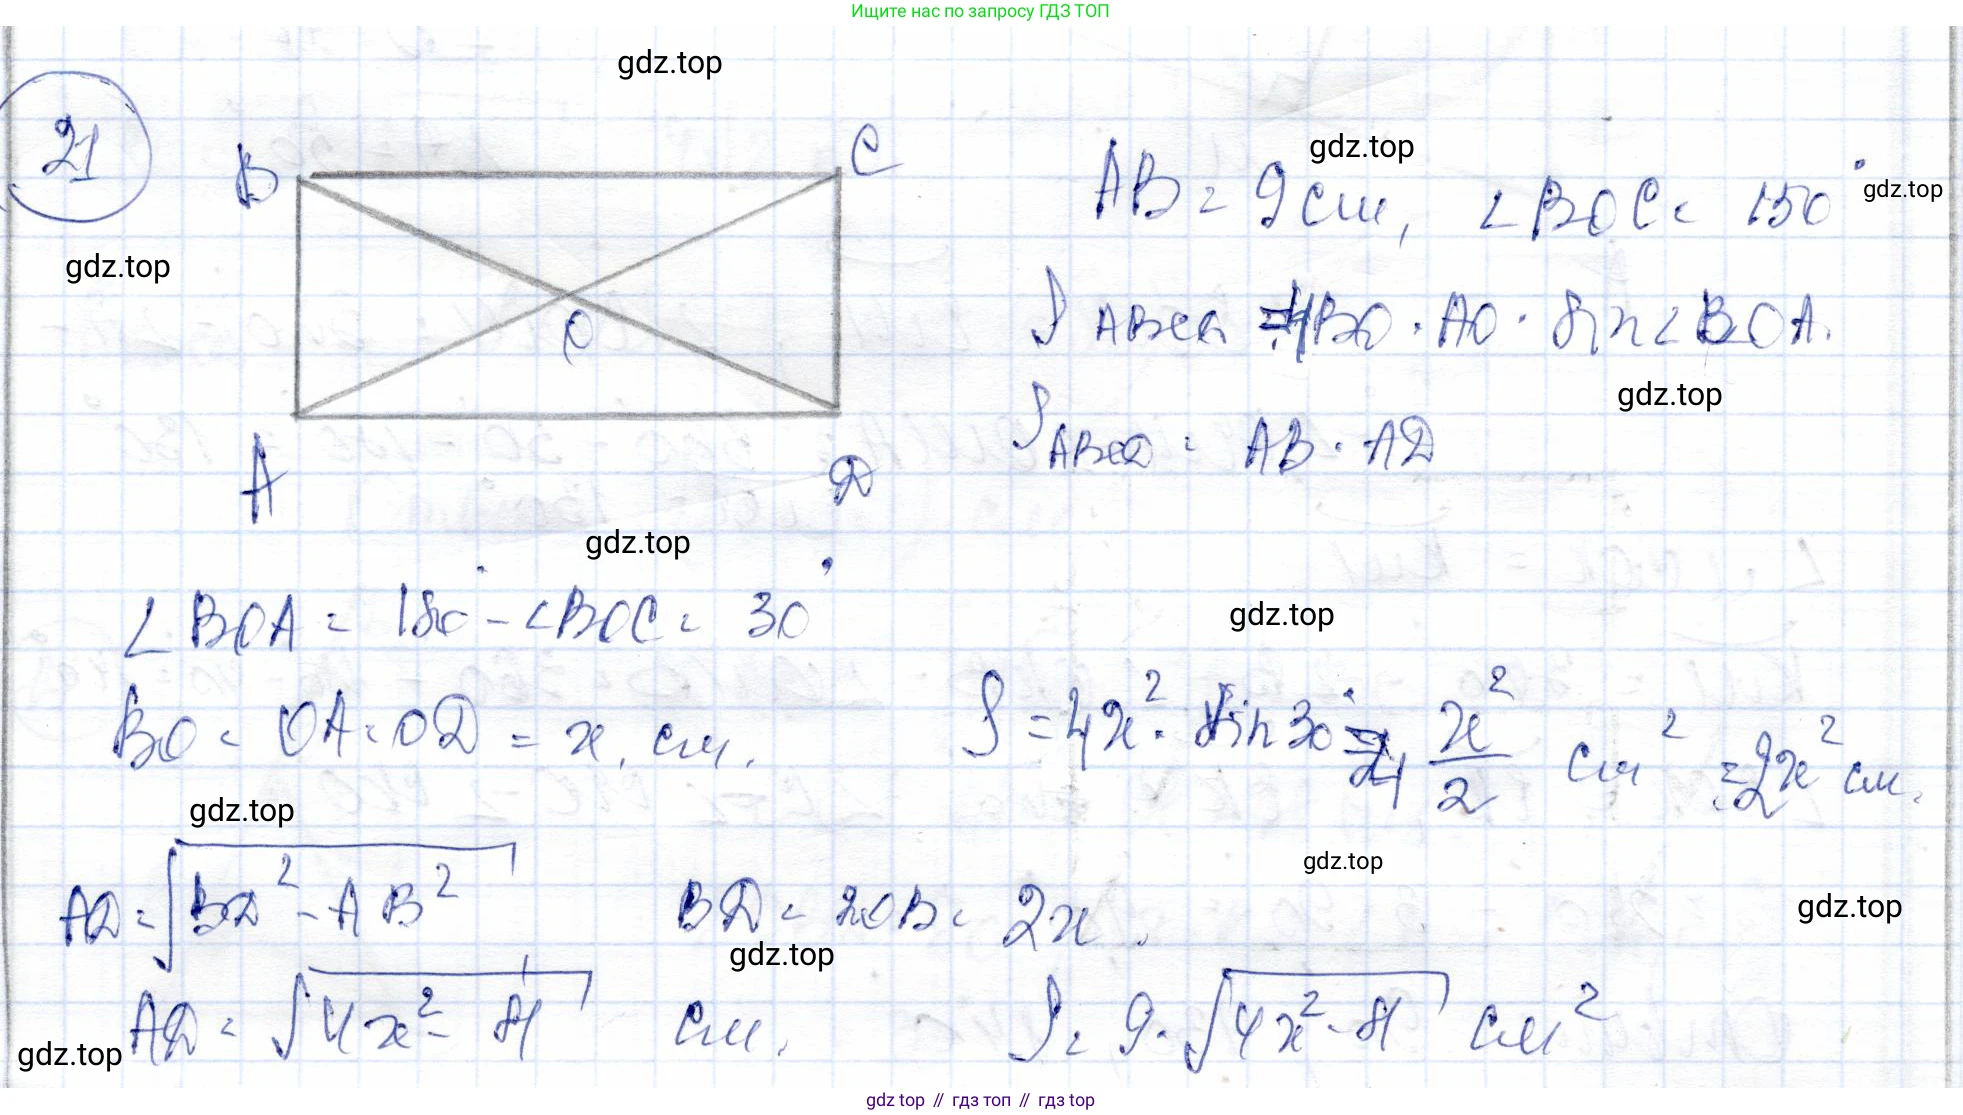 Ищите нас по запросу ГДЗ ТОП
gdz.top
21
B
C
AB = 9 см, ∠BOC = 150°
gdz.top
gdz.top
gdz.top
O
S ABCD = 4BO · AO · sin ∠BOA.
gdz.top
S ABCD = AB · AD
A
D
gdz.top
∠BOA = 180° - ∠BOC = 30°
gdz.top
BO = OA = OD = x. см.
S = 4x² · sin 30° = 4 x²/2 см² = 2x² см.
gdz.top
gdz.top
AD = √(BD² - AB²)
BD = 2OB = 2x.
gdz.top
gdz.top
AD = √(4x² - 81) см.
S = 9 · √(4x² - 81) см²
gdz.top
gdz top // гдз топ // gdz top